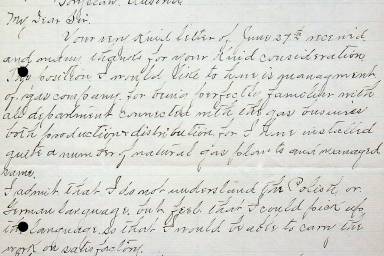 My Dear Sir.
Your very kind letter of June 27th received
and many thanks for your kind consideration
The position I would like to have is managment
of gas company, for being perfectly familiar with
all department connected with the gas busines
both production & distribution, for I have installed
quite a number of natural gas plants and managed
same.
I admit that I do not understand the Polish or
German language, but feel that I could pick up
the language so that I would be able to carry the
work on satisfactory.